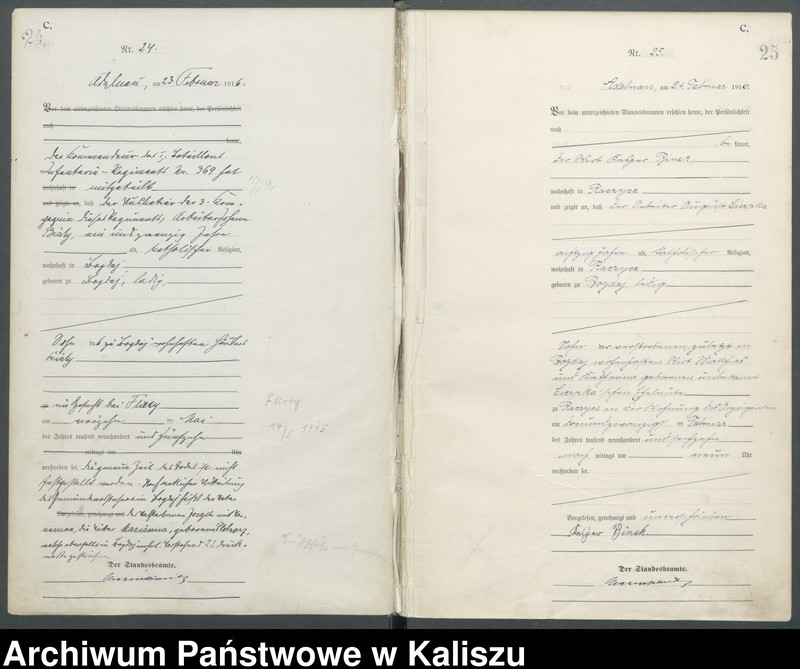 C.
24
Nr. 24.
Adelnau, am 23 Februar 1916.
Vor dem unterzeichneten Standesbeamten erschien heute, der Persönlichkeit
nach
kannt,
Der Kommandeur des I. Bataillons
Infanterie-Regiments Nr. 369 hat
wohnhaft in mitgeteilt
und zeigte an, daß der Musketier der 3. Kom-
pagnie dieses Regiments, Arbeiter Johann
Bialy, ein und zwanzig Jahre
alt, katholischer Religion,
wohnhaft in Bogdaj
geboren zu Bogdaj, ledig,
Sohn des zu Bogdaj wohnhaften
Bialy
im Gefecht bei Flirey
am vierzehn ten Mai
des Jahres tausend neunhundert und fünfzehn
mittags um Uhr
verstorben sei. Die genaue Zeit des Todes ist nicht
festgestellt worden. Nach amtlicher Mitteilung
des in Bogdaj heißt der Vater
Vorgelesen, genehmigt und des Verstorbenen Joseph mit Vor-
namen, die Mutter Marianna, geborene
ebenfalls in Bogdaj Vorstehend 22 Druck-
worte gestrichen.
Der Standesbeamte.
Flirey
14/5 1915
C.
25
Nr. 25.
Adelnau, am 24 Februar 1916.
Vor dem unterzeichneten Standesbeamten erschien heute, der Persönlichkeit
nach
be kannt,
der Wirt Kasper Binek
wohnhaft in Raczyce
und zeigte an, daß der Arbeiter August
achtzig Jahre alt, katholischer Religion,
wohnhaft in Raczyce
geboren zu Bogdaj, ledig
Sohn der verstorbenen zuletzt in
Bogdaj wohnhaften Wirt Matthias
und Katharina geborenen unbekannt
Eheleute
zu Raczyce in der Wohnung des Anzeigenden
am dreiundzwanzig ten Februar
des Jahres tausend neunhundert und sechzehn
nach mittags um neun Uhr
verstorben sei.
Vorgelesen, genehmigt und unterschrieben
Kasper Binek
Der Standesbeamte.
Archiwum Państwowe w Kaliszu